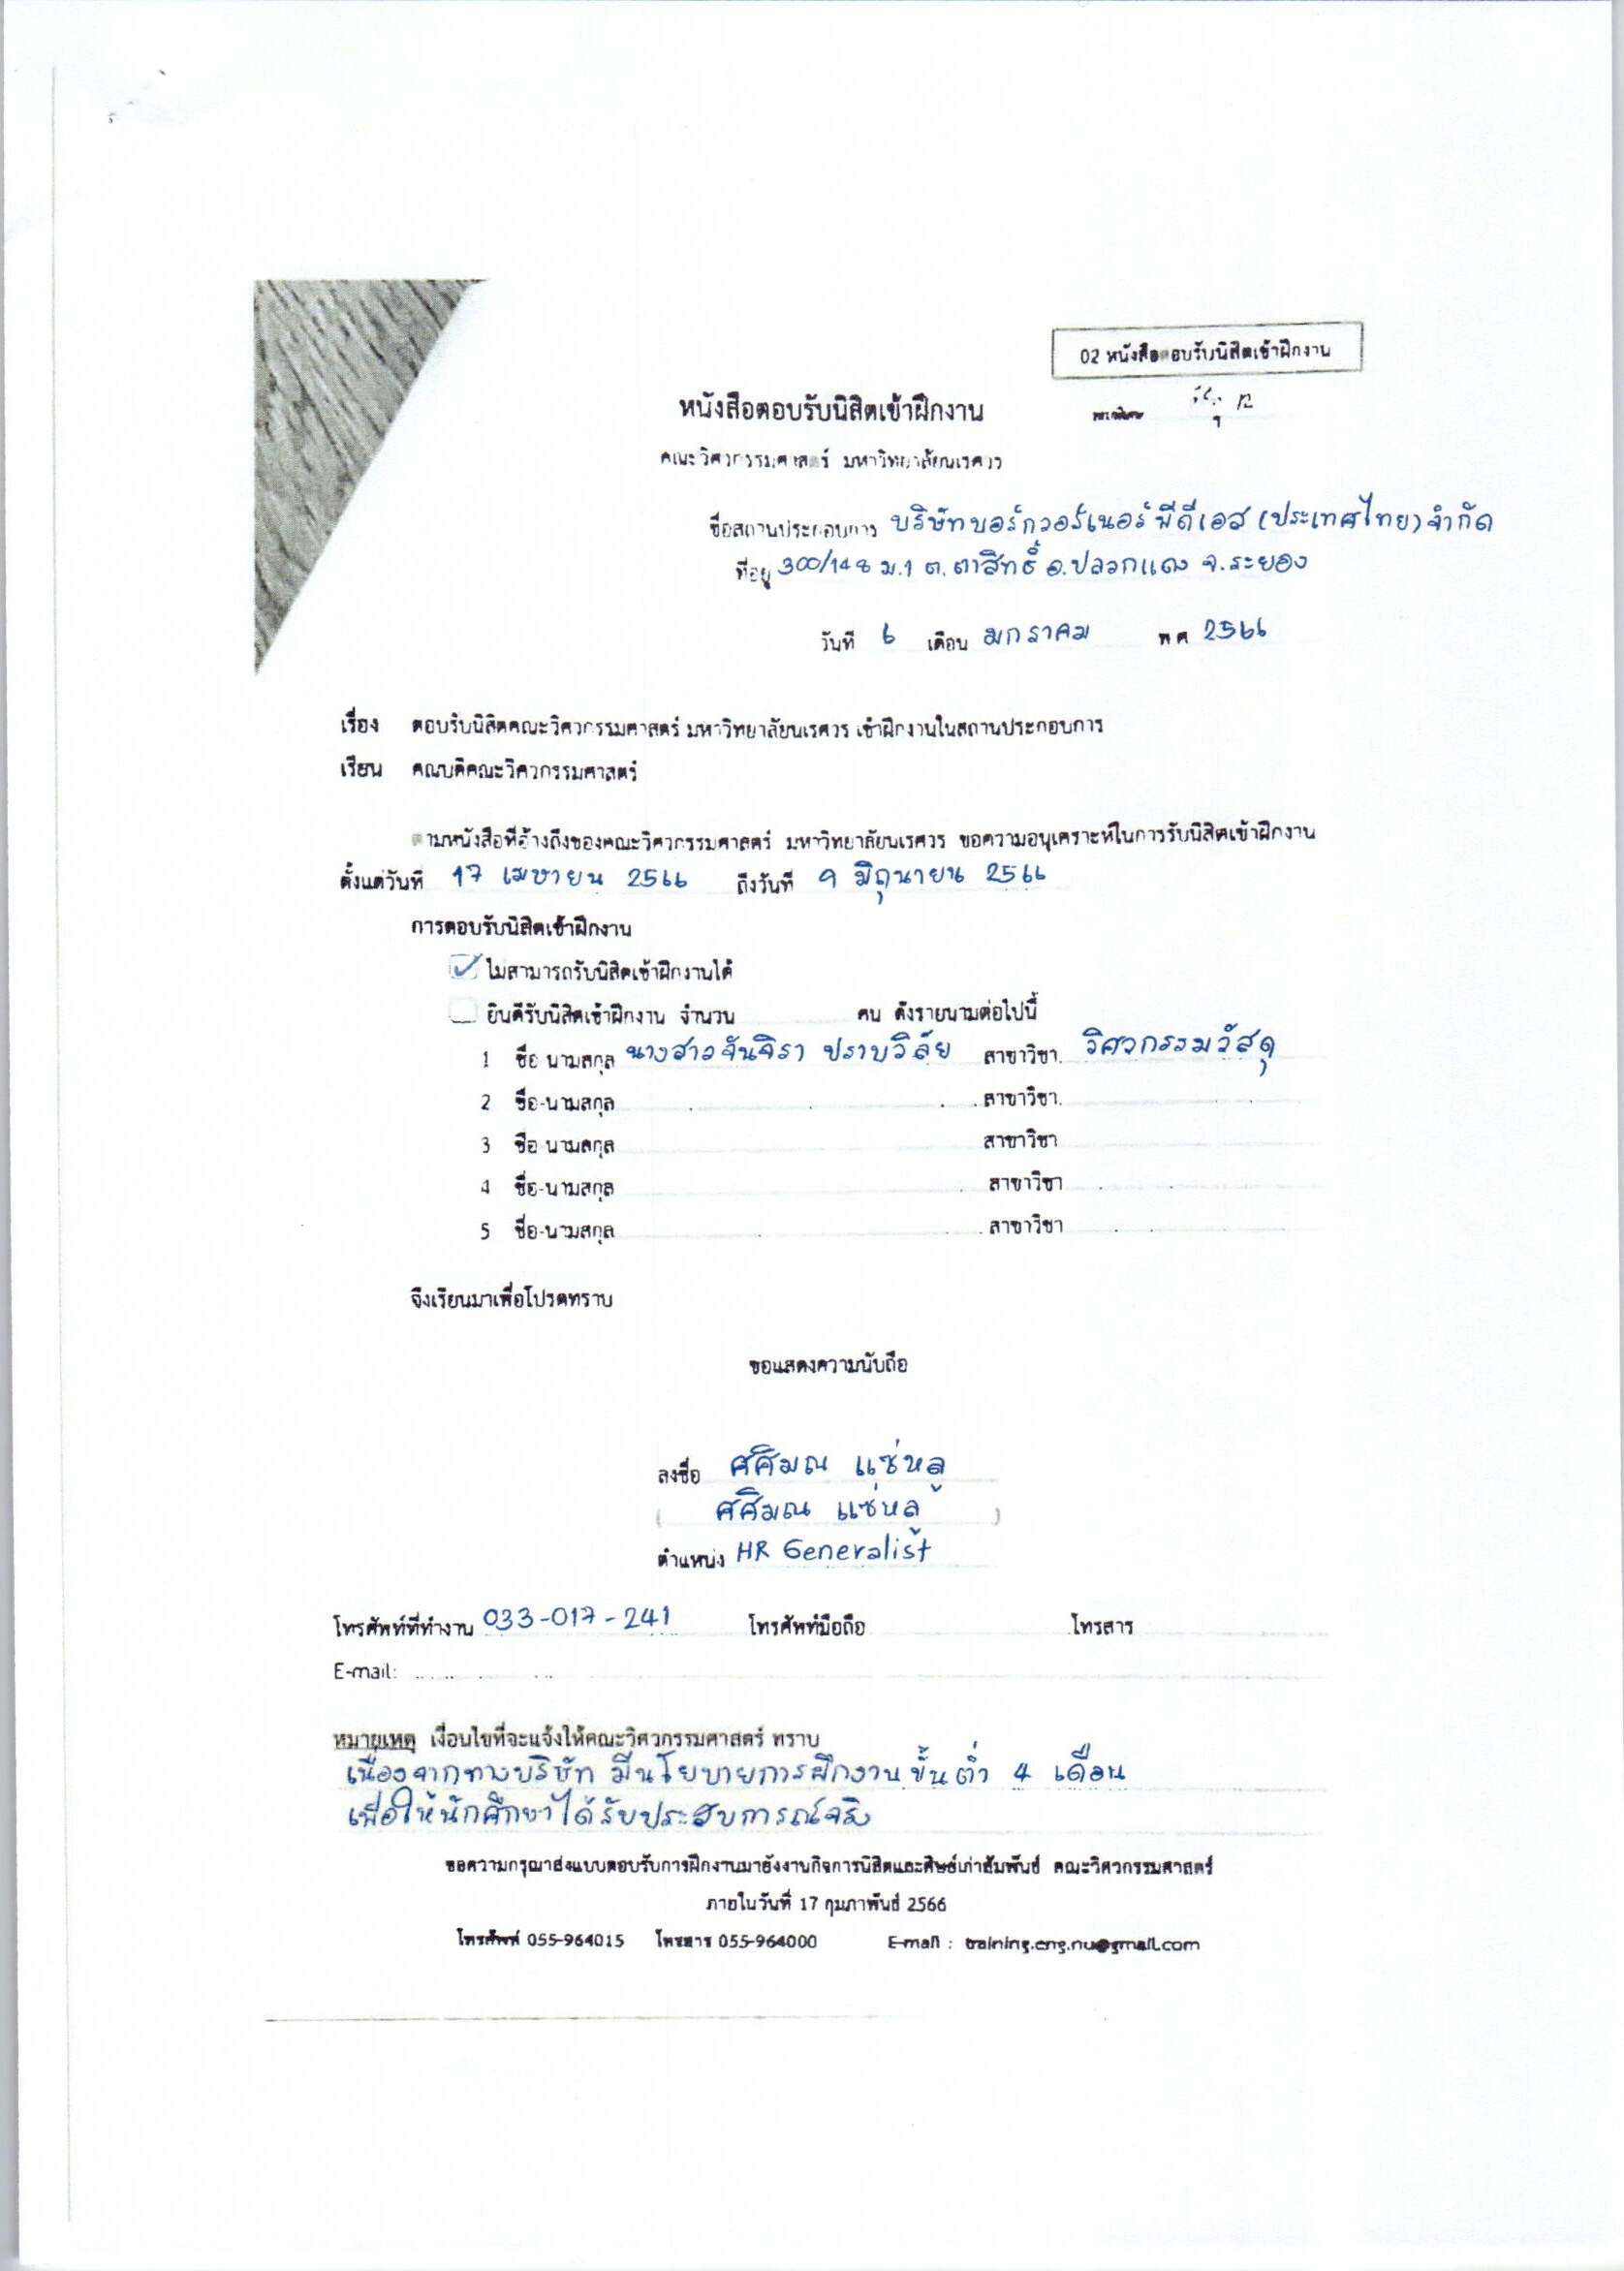 02 หนังสือตอบรับนิสิตเข้าฝึกงาน
หนังสือตอบรับนิสิตเข้าฝึกงาน
คณะวิศวกรรมศาสตร์ มหาวิทยาลัยนเรศวร
ชื่อสถานประกอบการ บริษัทบอร์กวอร์เนอร์ พีดีเอส (ประเทศไทย) จำกัด
ที่อยู่ 300/148 ม.1 ต.ตาสิทธิ์ อ.ปลวกแดง จ.ระยอง
วันที่ 6 เดือน มกราคม พ ศ 2566
เรื่อง ตอบรับนิสิตคณะวิศวกรรมศาสตร์ มหาวิทยาลัยนเรศวร เข้าฝึกงานในสถานประกอบการ
เรียน คณบดีคณะวิศวกรรมศาสตร์
ตามหนังสือที่อ้างถึงของคณะวิศวกรรมศาสตร์ มหาวิทยาลัยนเรศวร ขอความอนุเคราะห์ในการรับนิสิตเข้าฝึกงาน
ตั้งแต่วันที่ 17 เมษายน 2566 ถึงวันที่ 9 มิถุนายน 2566
การตอบรับนิสิตเข้าฝึกงาน
✓ ไม่สามารถรับนิสิตเข้าฝึกงานได้
ยินดีรับนิสิตเข้าฝึกงาน จำนวน คน ดังรายนามต่อไปนี้
1 ชื่อ นามสกุล นางสาวจันจิรา ปราบวิลัย สาขาวิชา. วิศวกรรมวัสดุ
2 ชื่อ-นามสกุล สาขาวิชา.
3 ชื่อ นามสกุล สาขาวิชา
4 ชื่อ-นามสกุล สาขาวิชา
5 ชื่อ-นามสกุล สาขาวิชา
จึงเรียนมาเพื่อโปรดทราบ
ขอแสดงความนับถือ
ลงชื่อ ศศิมณ แซ่หลู่
( ศศิมณ แซ่หลู่ )
ตำแหน่ง HR Generalist
โทรศัพท์ที่ทำงาน 033-017-241 โทรศัพท์มือถือ โทรสาร
E-mail:
หมายเหตุ เงื่อนไขที่จะแจ้งให้คณะวิศวกรรมศาสตร์ ทราบ
เนื่องจากทางบริษัท มีนโยบายการฝึกงาน ขั้นต่ำ 4 เดือน
เพื่อให้นักศึกษาได้รับประสบการณ์จริง
ขอความกรุณาส่งแบบตอบรับการฝึกงานมายังงานกิจการนิสิตและศิษย์เก่าสัมพันธ์ คณะวิศวกรรมศาสตร์
ภายในวันที่ 17 กุมภาพันธ์ 2566
โทรศัพท์ 055-964015 โทรสาร 055-964000 E-mail : training.eng.nu@gmail.com